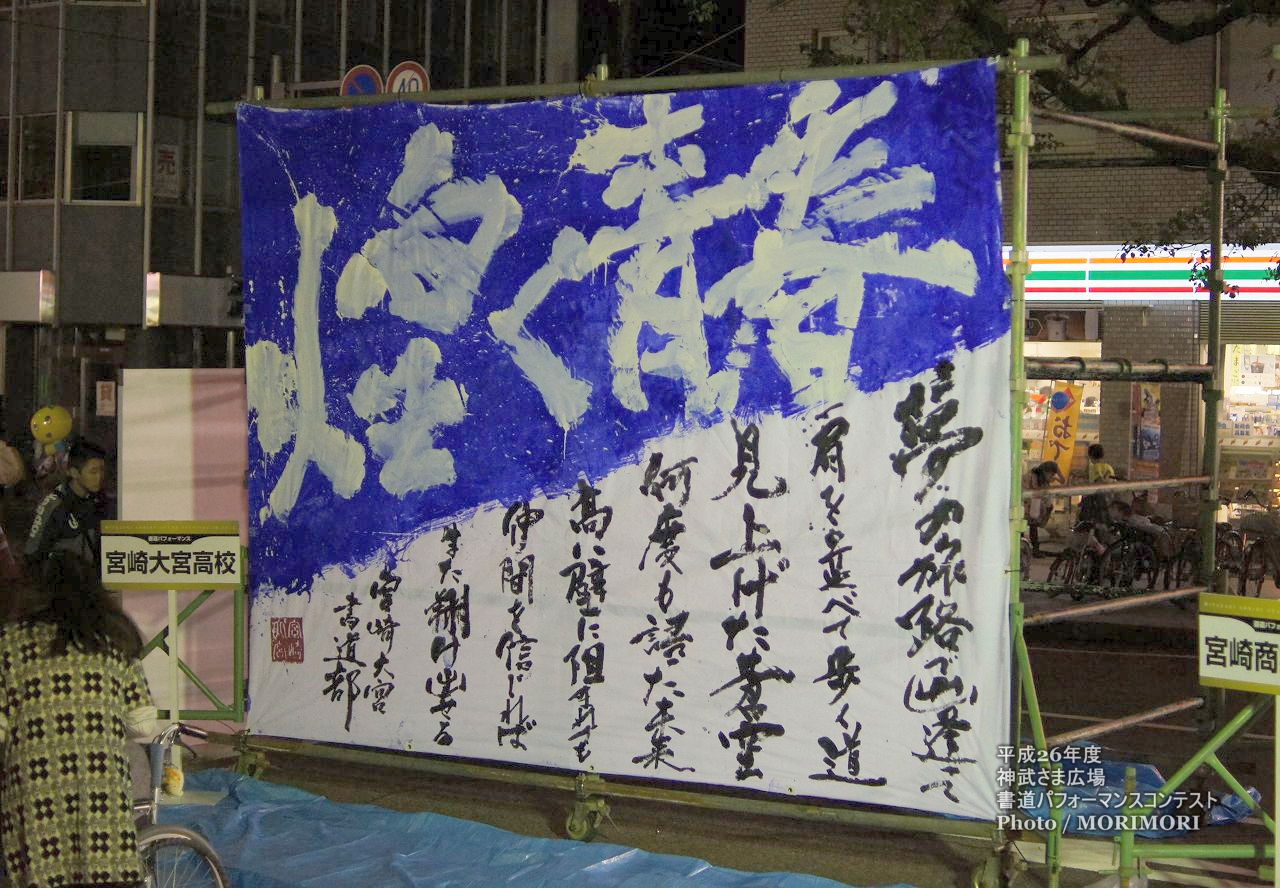 春青く煌
夢の旅路で出逢って
肩を並べて歩く道
見上げた青空
何度も語った未来
高い壁に阻まれても
仲間を信じれば
また翔け出せる
宮崎大宮
書道部
書道パフォーマンス
宮崎大宮高校
書道パフォ
宮崎商
40
平成26年度
神武さま広場
書道パフォーマンスコンテスト
Photo / MORIMORI